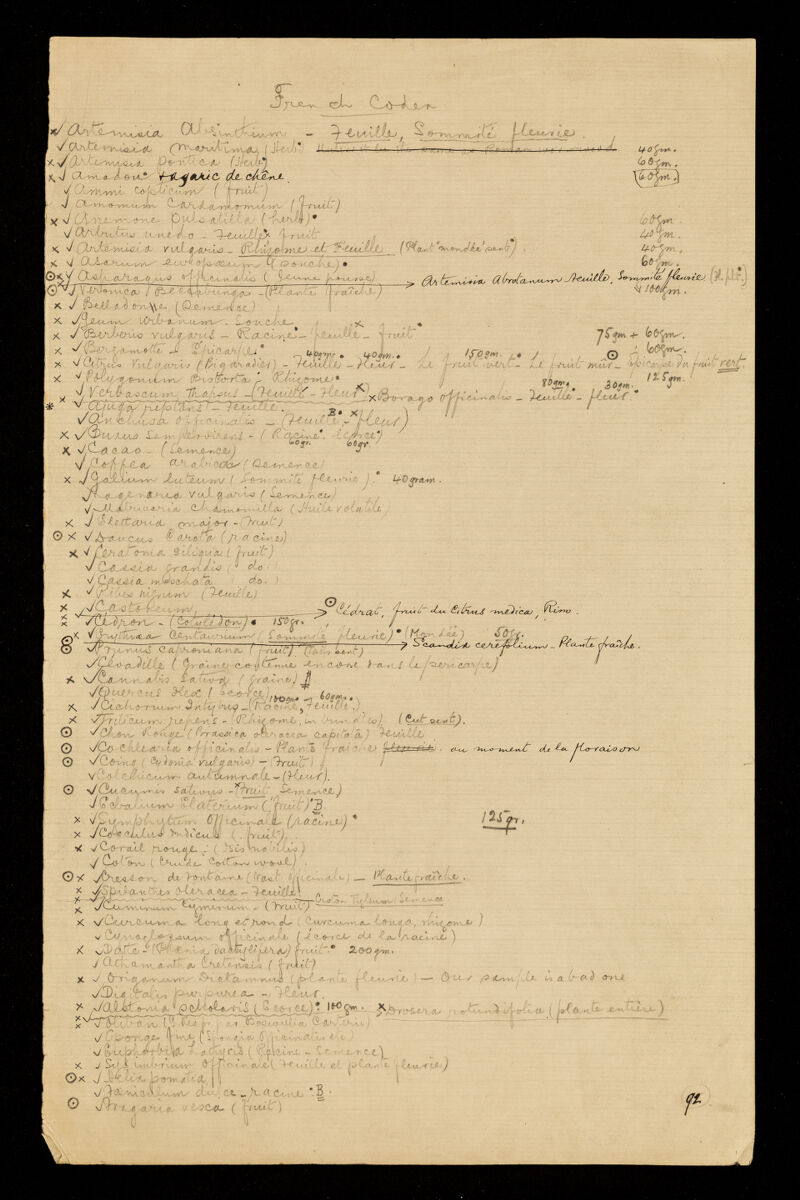 French Codex
x ✓ Artemisia Absinthium - Feuille, Sommité fleurie.
✓ Artemisia Maritima (Herb) 40gm.
x ✓ Artemisia Pontica (Herb) 60gm.
x ✓ Amadou agaric de chêne. 60gm.
✓ Ammi copticum (fruit)
✓ Amomum Cardamomum (fruit)
x ✓ Anemone Pulsatilla (herb) 60gm.
✓ Arbutus unedo - Feuille, fruit 40gm.
x ✓ Artemisia vulgaris - Rhizome et Feuille (Plant "mondée" sent) 40gm.
x ✓ Asarum europaeum (souche) 60gm.
x ✓ Asparagus officinalis (Jeune pousse) → Artemisia Abrotanum Feuille, Sommité fleurie
✓ Veronica Beccabunga - (Plante fraîche) 100gm.
x ✓ Belladonne (Semence)
x ✓ Geum Urbanum. Souche
x ✓ Berberis vulgaris - Racine - feuille - fruit 75gm + 60gm.
x ✓ Bergamotte - Epicarpe 60gm.
x ✓ Citrus Vulgaris (Bigaradier) - 40gm. Feuille - 40gm. Fleur - Le fruit vert 150gm. Le fruit mûr - Epicarpe du fruit vert.
x ✓ Polygonum Bistorta - Rhizome 125gm.
✓ Verbascum Thapsus - (Feuille - Fleur) x Borago officinalis - Feuille 80gm. - fleur 30gm.
x ✓ Ajuga reptans - Feuille.
✓ Anchusa Officinalis - (Feuille - fleur)
x ✓ Buxus Sempervirens - (Racine 60gr. Ecorce 60gr.)
x ✓ Cacao - (Semence)
✓ Coffea arabica (Semence)
x ✓ Galium luteum (Sommité fleurie) 40gram.
✓ Lagenaria vulgaris (Semence)
✓ Matricaria Chamomilla (Huile volatile)
x ✓ Elettaria major - (Fruit)
x ✓ Daucus Carota (racine)
x ✓ Ceratonia Siliqua (fruit)
✓ Cassia grandis (do)
✓ Cassia moschata (do.)
x ✓ Ribes nigrum (Feuille)
x ✓ Castoreum,
x ✓ Cédron - (Cotylédon) 150gr. → Cédrat, fruit du Citrus medica, Risso.
x ✓ Erythrea Centaurium (Sommité fleurie) (Mondée) 50gr.
✓ Prunus caproniana (fruit) → Scandix cerefolium - Plante fraîche.
✓ Cévadille (Graine contenue encore dans le péricarpe)
x ✓ Cannabis Sativa (graine)
✓ Quercus Ilex (écorce)
x ✓ Cichorium Intybus - (Racine, 100gm. Feuille 60gm.)
x ✓ Triticum repens - (Rhizome, in bundles) (Cut sent).
✓ Chou Rouge (Brassica oleracea capitata) Feuille
✓ Cochlearia officinalis - Plante fraîche au moment de la floraison
✓ Coing (Cydonia vulgaris) - (Fruit)
✓ Colchicum autumnale - (Fleur).
✓ Cucumis sativus - (Fruit, Semence)
✓ Ecbalium Elaterium (fruit) B
x ✓ Symphytum Officinale (racine) 125gr.
x ✓ Cocculus Indicus (fruit).
x ✓ Corail rouge, (Isis nobilis)
✓ Coton (Crude Cotton wool)
x ✓ Cresson de Fontaine (Nast. officinale) - Plante fraîche.
x ✓ Spilanthes Oleracea - Feuille Croton Tiglium (Semence
x ✓ Cuminum Cyminum - (Fruit)
x ✓ Curcuma long et rond (Curcuma longa, rhizome)
✓ Cynoglossum officinale (Ecorce de la racine)
x ✓ Date - (Phoenix dactylifera) fruit. 200gm.
✓ Athamantha Cretensis (fruit)
x ✓ Origanum Dictamnus (plante fleurie) - Our sample is a bad one
✓ Digitalis purpurea - Fleur.
x ✓ Alstonia scholaris (Ecorce) 100gm. x Drosera rotundifolia (plante entière)
x ✓ Oliban
✓ Eponge fine (Spongia Officinalis etc)
✓ Euphorbia Lathyris (Racine - Semence)
x ✓ Sisymbrium Officinale (Feuille et plante fleurie)
x ✓ Helix pomatia
✓ Foeniculum dulce - racine B.
✓ Fragaria vesca (fruit)
92